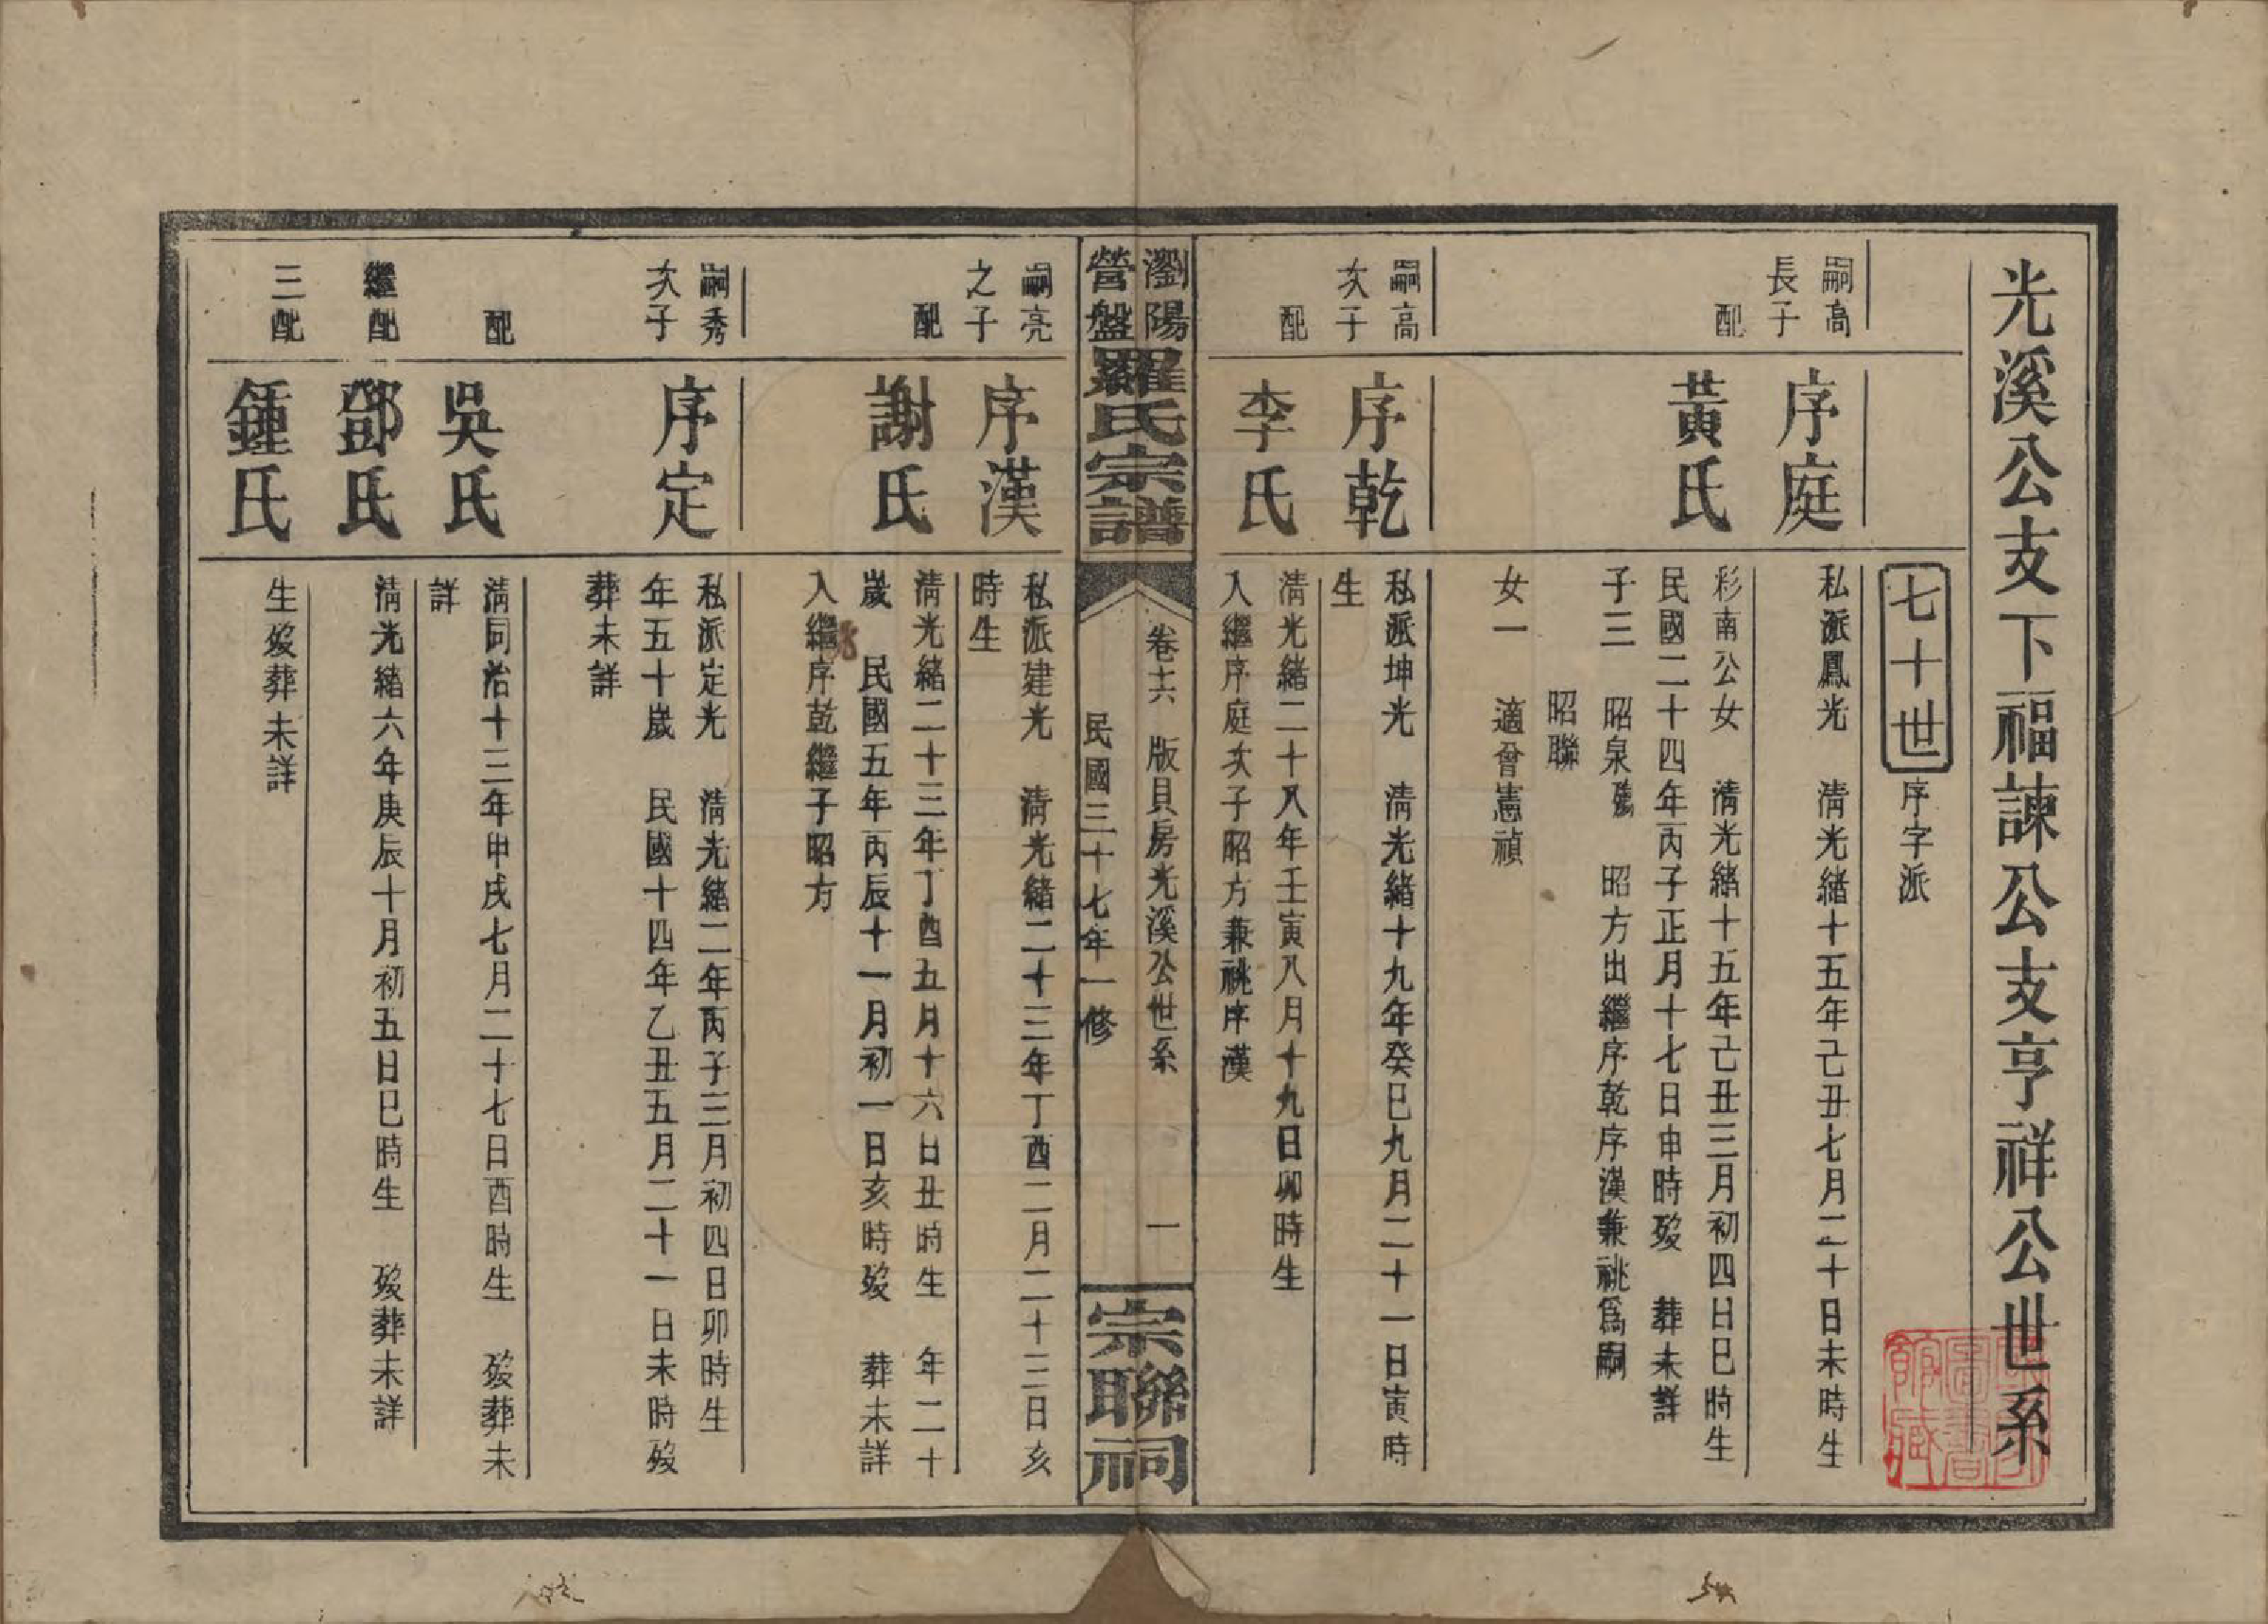 光溪公支下福諫公支亨祥公世系
七十世
序字派
嗣高
長子
序庭
私派鳳光　清光緒十五年己丑七月二十日未時生
配
黃氏
彩南公女　清光緒十五年己丑三月初四日巳時生
民國二十四年丙子正月十七日申時歿　葬未詳
子三　昭泉殤　昭方出繼序乾序漢兼祧爲嗣
昭聯
女一　適曾憲禎
嗣高
次子
序乾
私派坤光　清光緒十九年癸巳九月二十一日寅時
生
配
李氏
清光緒二十八年壬寅八月十九日卯時生
入繼序庭次子昭方兼祧序漢
瀏陽
營盤
羅氏宗譜
卷十六　版貝房光溪公世系　一
民國三十七年一修
宗聯祠
嗣亮
之子
序漢
私派建光　清光緒二十三年丁酉二月二十三日亥
時生
配
謝氏
清光緒二十三年丁酉五月十六日丑時生　年二十
歲　民國五年丙辰十一月初一日亥時歿　葬未詳
入繼序乾繼子昭方
嗣秀
次子
序定
私派定光　清光緒二年丙子三月初四日卯時生
年五十歲　民國十四年乙丑五月二十一日未時歿
葬未詳
配
吳氏
清同治十三年甲戌七月二十七日酉時生　歿葬未
詳
繼配
鄧氏
清光緒六年庚辰十月初五日巳時生　歿葬未詳
三配
鍾氏
生歿葬未詳